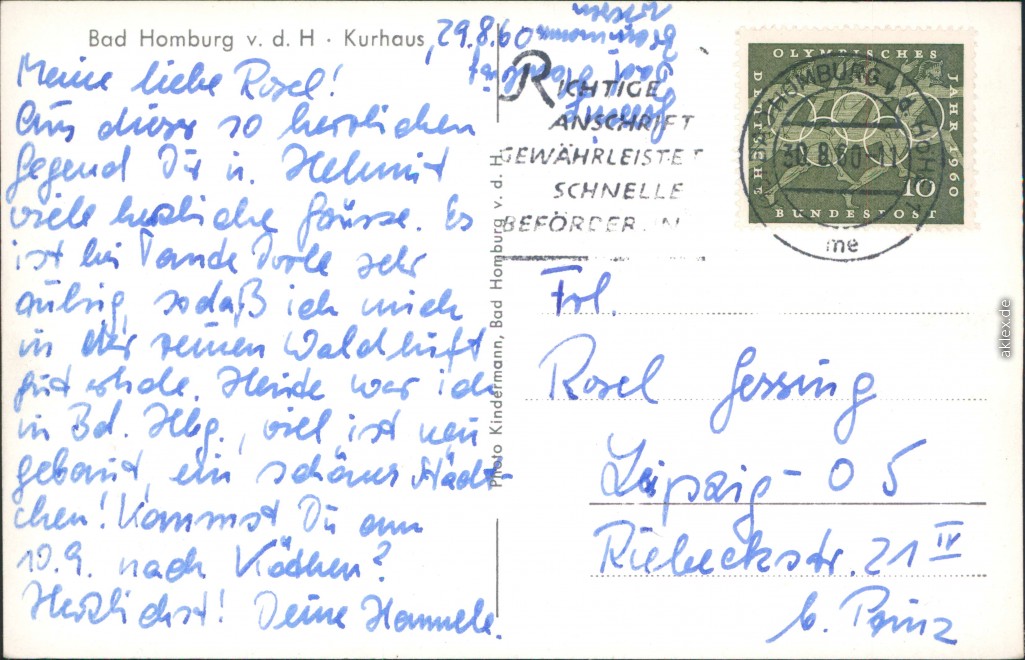 Bad Homburg v. d. H · Kurhaus, 29.8.60
Meine liebe Rosel!
Aus dieser so herrlichen
Gegend Dir u. Helmut
viele herzliche Grüsse. Es
ist bei Tande Dorle sehr
ruhig, sodaß ich mich
in der reinen Waldluft
gut erhole. Heute war ich
in Bd. Hbg., viel ist neu
gebaut, ein schönes Städt-
chen! Kommst Du am
10.9. nach Käthen?
Herzlichst! Deine Hannele.
Photo Kindermann, Bad Homburg v. d. H.
RICHTIGE
ANSCHRIFT
GEWÄHRLEISTET
SCHNELLE
BEFÖRDERUN
OLYMPISCHES
JAHR 1960
DEUTSCHE
BUNDESPOST
10
HOMBURG v d HÖHE 1
30.8.60-11
me
Frl.
Rosel Gessing
Leipzig - O 5
Riebeckstr. 21 IV
b. Prinz
aklex.de